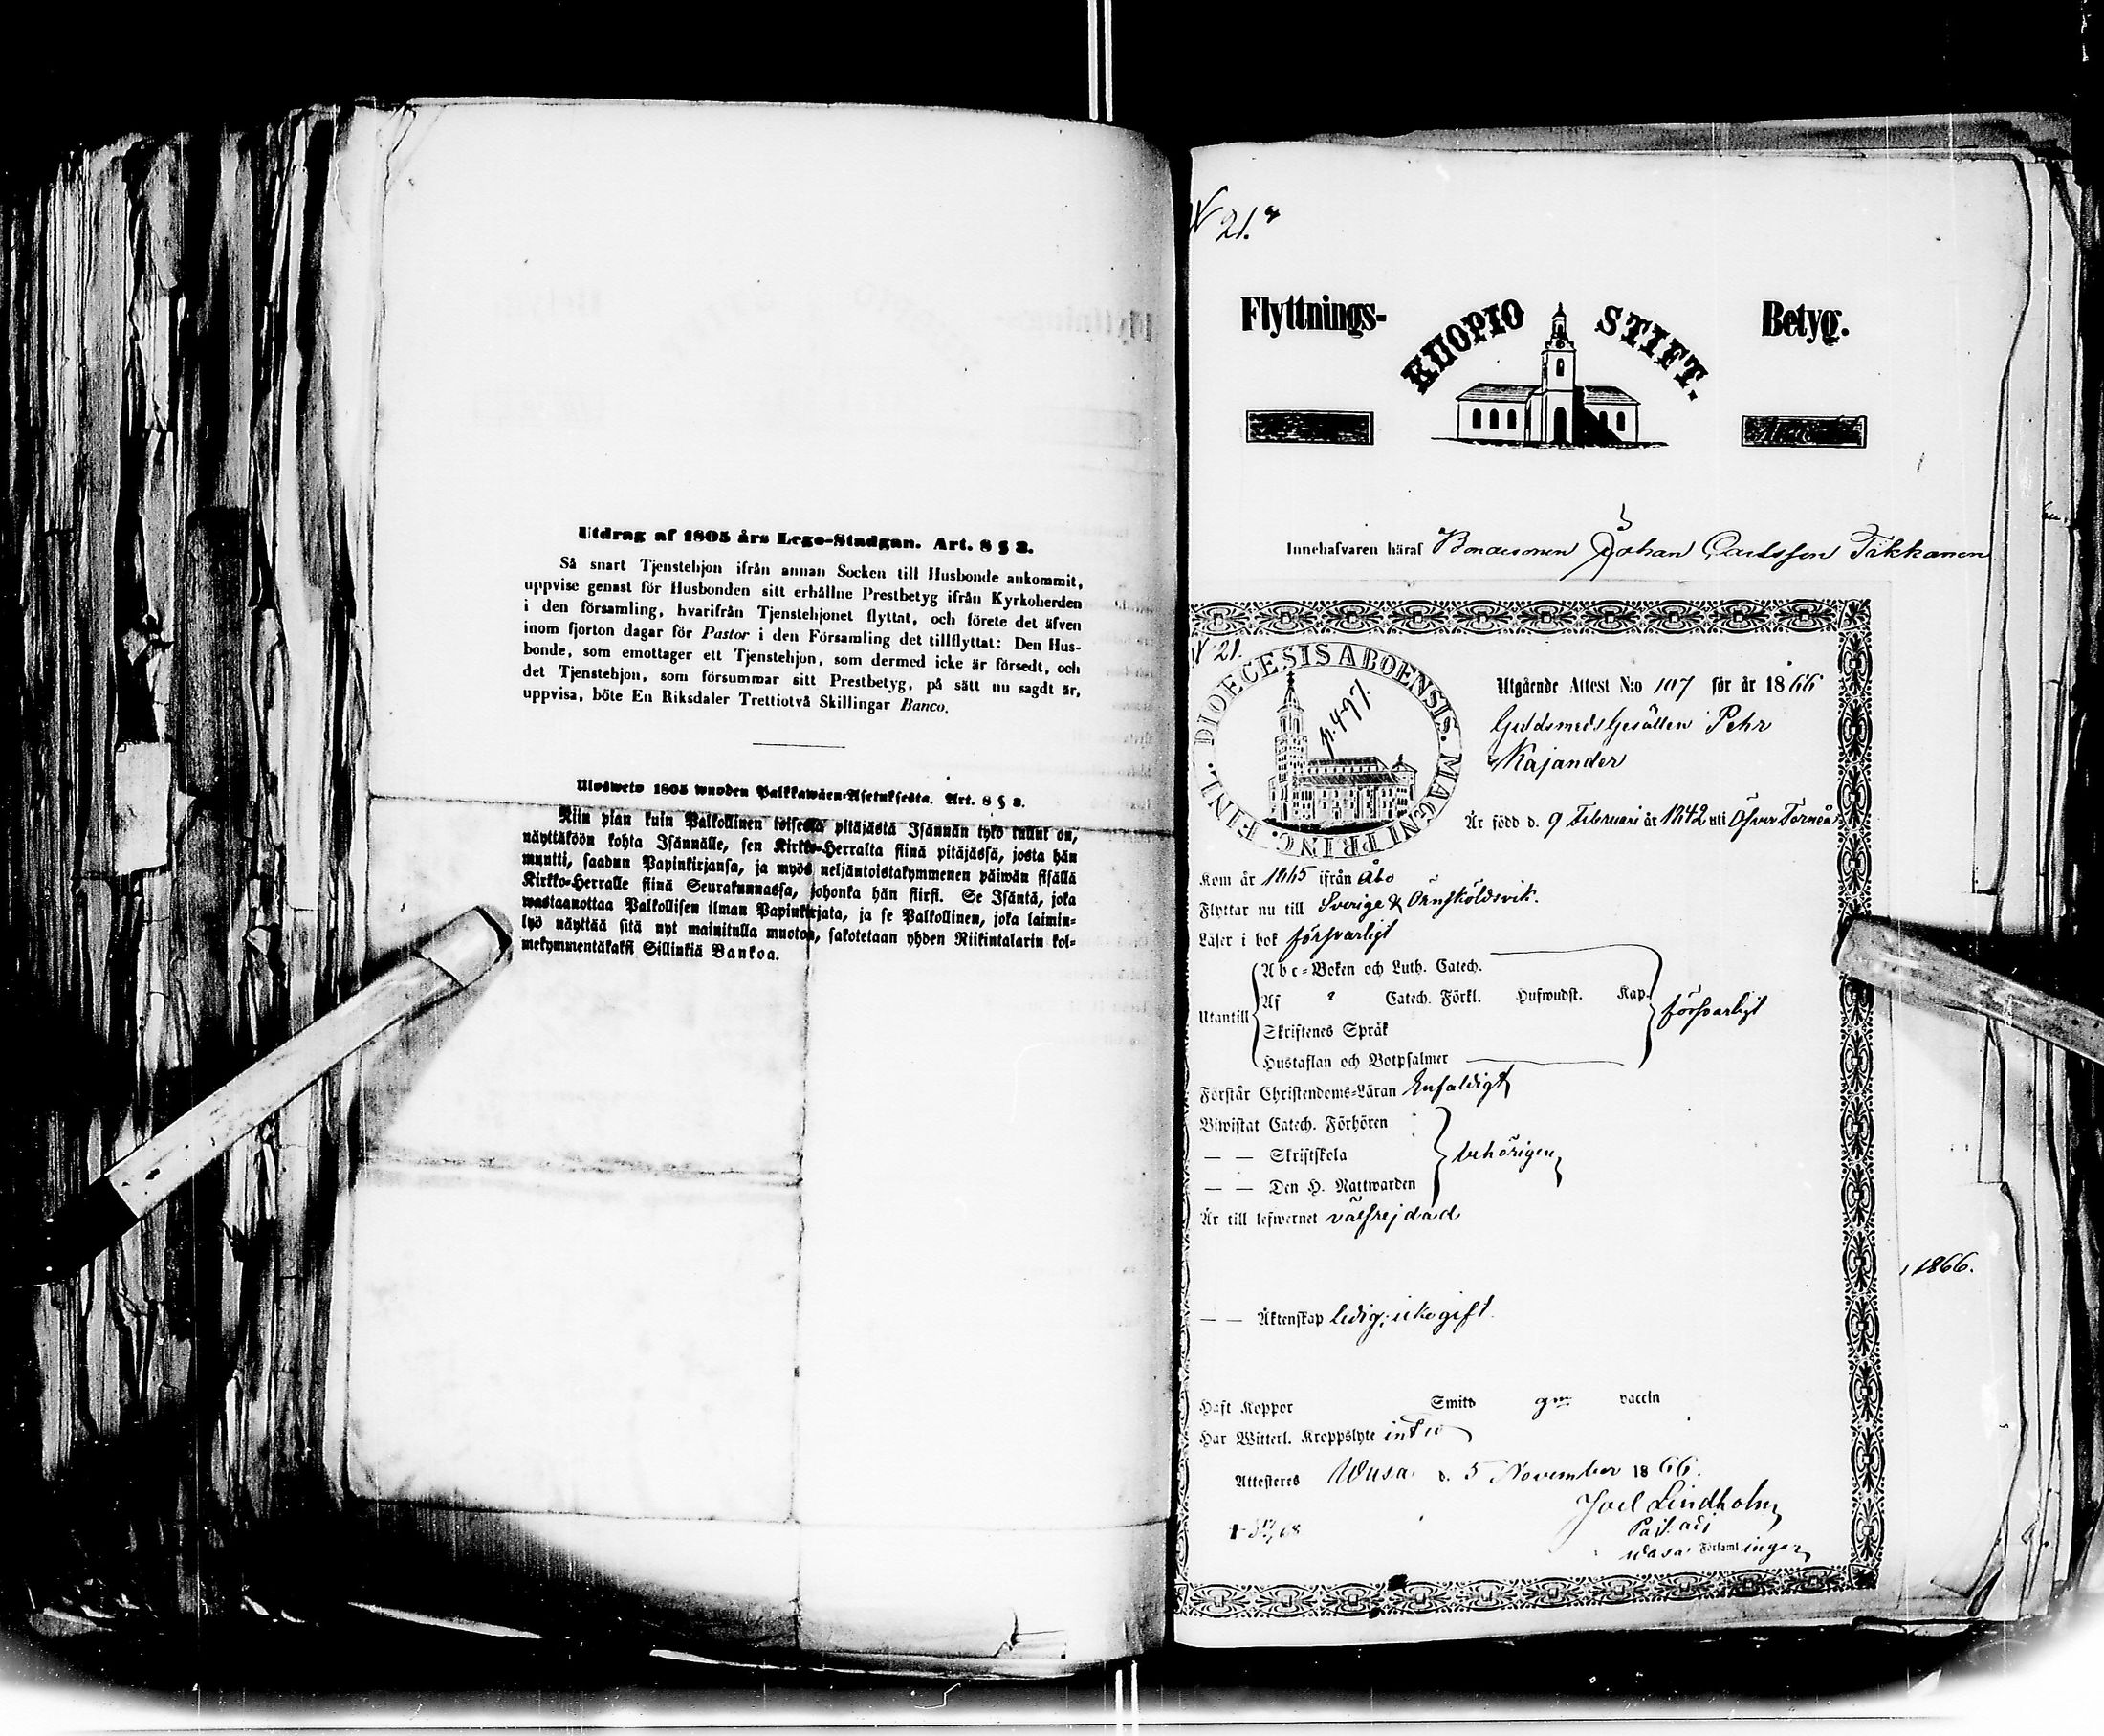 Utdrag af 1805 års Lego-Stadgan. Art. 8 § 3.
Så snart Tjenstehjon ifrån annan Socken till Husbonde ankommit,
uppvise genast för Husbonden sitt erhållne Prestbetyg ifrån Kyrkoherden
i den församling, hvarifrån Tjenstehjonet flyttat, och förete det äfven
inom fjorton dagar för Pastor i den Församling det tillflyttat: Den Hus-
bonde, som emottager ett Tjenstehjon, som dermed icke är försedt, och
det Tjenstehjon, som försummar sitt Prestbetyg, på sätt nu sagdt är,
uppvisa, böte En Riksdaler Trettiotvå Skillingar Banco.
Ulosweto 1805 wuoden Palkkawäen-Asetuksesta. Art. 8 § 3.
Niin pian kuin Palkollinen toisesta pitäjästä Isännän tykö tullut on,
näyttäköön kohta Isännälle, sen Kirkko-Herralta siinä pitäjässä, josta hän
muutti, saadun Papinkirjansa, ja myös neljäntoistakymmenen päiwän sisällä
Kirkko-Herralle siinä Seurakunnassa, johonka hän siirsi. Se Isäntä, joka
wastaanottaa Palkollisen ilman Papinkirjata, ja se Palkollinen, joka laimin-
lyö näyttää sitä nyt mainitulla muoton, sakotetaan yhden Riikintalarin kol-
mekymmentäkaksi Sillinkiä Bankoa.
N 21.a
Flyttnings- KUOPIO STIFT. Betyg.
Innehafvaren häraf Bondesonen Johan Carlsson Takkanen
N 21.
DIOECESIS ABOENSIS. MAGNI PRINC. FINL.
p. 497.
Utgående Attest N:o 107 för år 1866
Guldsmeds Gesällen Pehr
Kajander
Är född d. 9 Februari år 1842 uti Öfver Torneå
Kom år 1865 ifrån Åbo
Flyttar nu till Sverige & Örnsköldsvik.
Läser i bok försvarligt
Utantill
Abc-Boken och Luth. Catech.
Af Catech. Förkl. Hufwudst. Kap.
Skriftenes Språk
Hustaflan och Botpsalmer
försvarligt
Förstår Christendoms-Läran Enfaldigt
Biwistat Catech. Förhören
— — Skriftskola
— — Den H. Nattwarden
behörigen
Är till lefwernet välfrejdad
1866.
— — Äktenskap ledig, icke gift
Haft Koppor Smitt gm vaccin
Har Witterl. Kroppslyte intet
Attesteres Wasa d. 5 November 1866.
Joel Lindholm
Past. adj
Wasa Församlingar